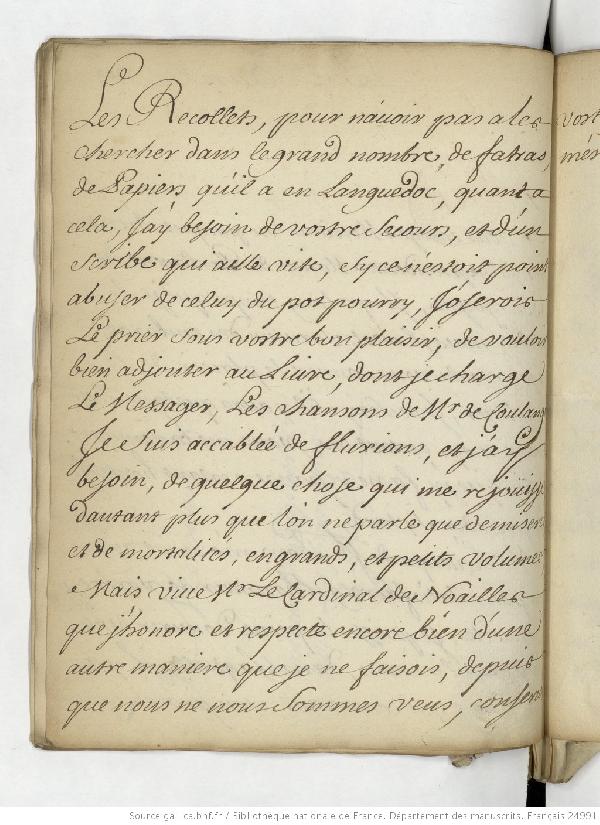 Les Recollets, pour n'auoir pas a les
chercher dans le grand nombre, de fatras,
de Papiers qu'il a en Languedoc, quant a
cela, J'ay besoin de vostre Secours, et d'un
scribe qui aille vite, sy ce n'estoit point
abuser de celuy du pot pourry, J'oserois
Le prier sous vostre bon plaisir, de vouloir
bien adjouter au Liure, dont je charge
Le Messager, Les chansons de Mr. de Coulang
Je suis accablée de fluxions, et j'ay
besoin, de quelque chose qui me rejouisse
dautant plus que l'on ne parle que de misere
et de mortalites, en grands, et petits volumes
Mais viue Mr. Le Cardinal de Noailles
que j'honore et respecte encore bien d'une
autre maniere que je ne faisois, depuis
que nous ne nous sommes veus, conserv
vost
mes
Source gallica.bnf.fr / Bibliothèque nationale de France. Département des manuscrits. Français 24991